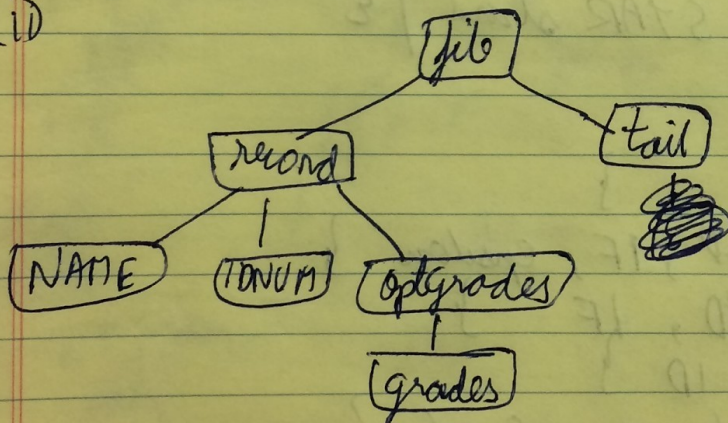 1D
file
record
tail
NAME
IDNUM
optgrades
grades